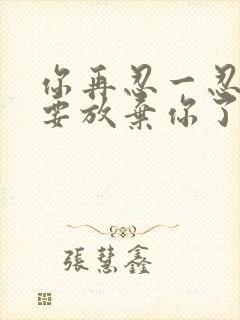 你再忍一忍
要放棄你了
張慧鑫